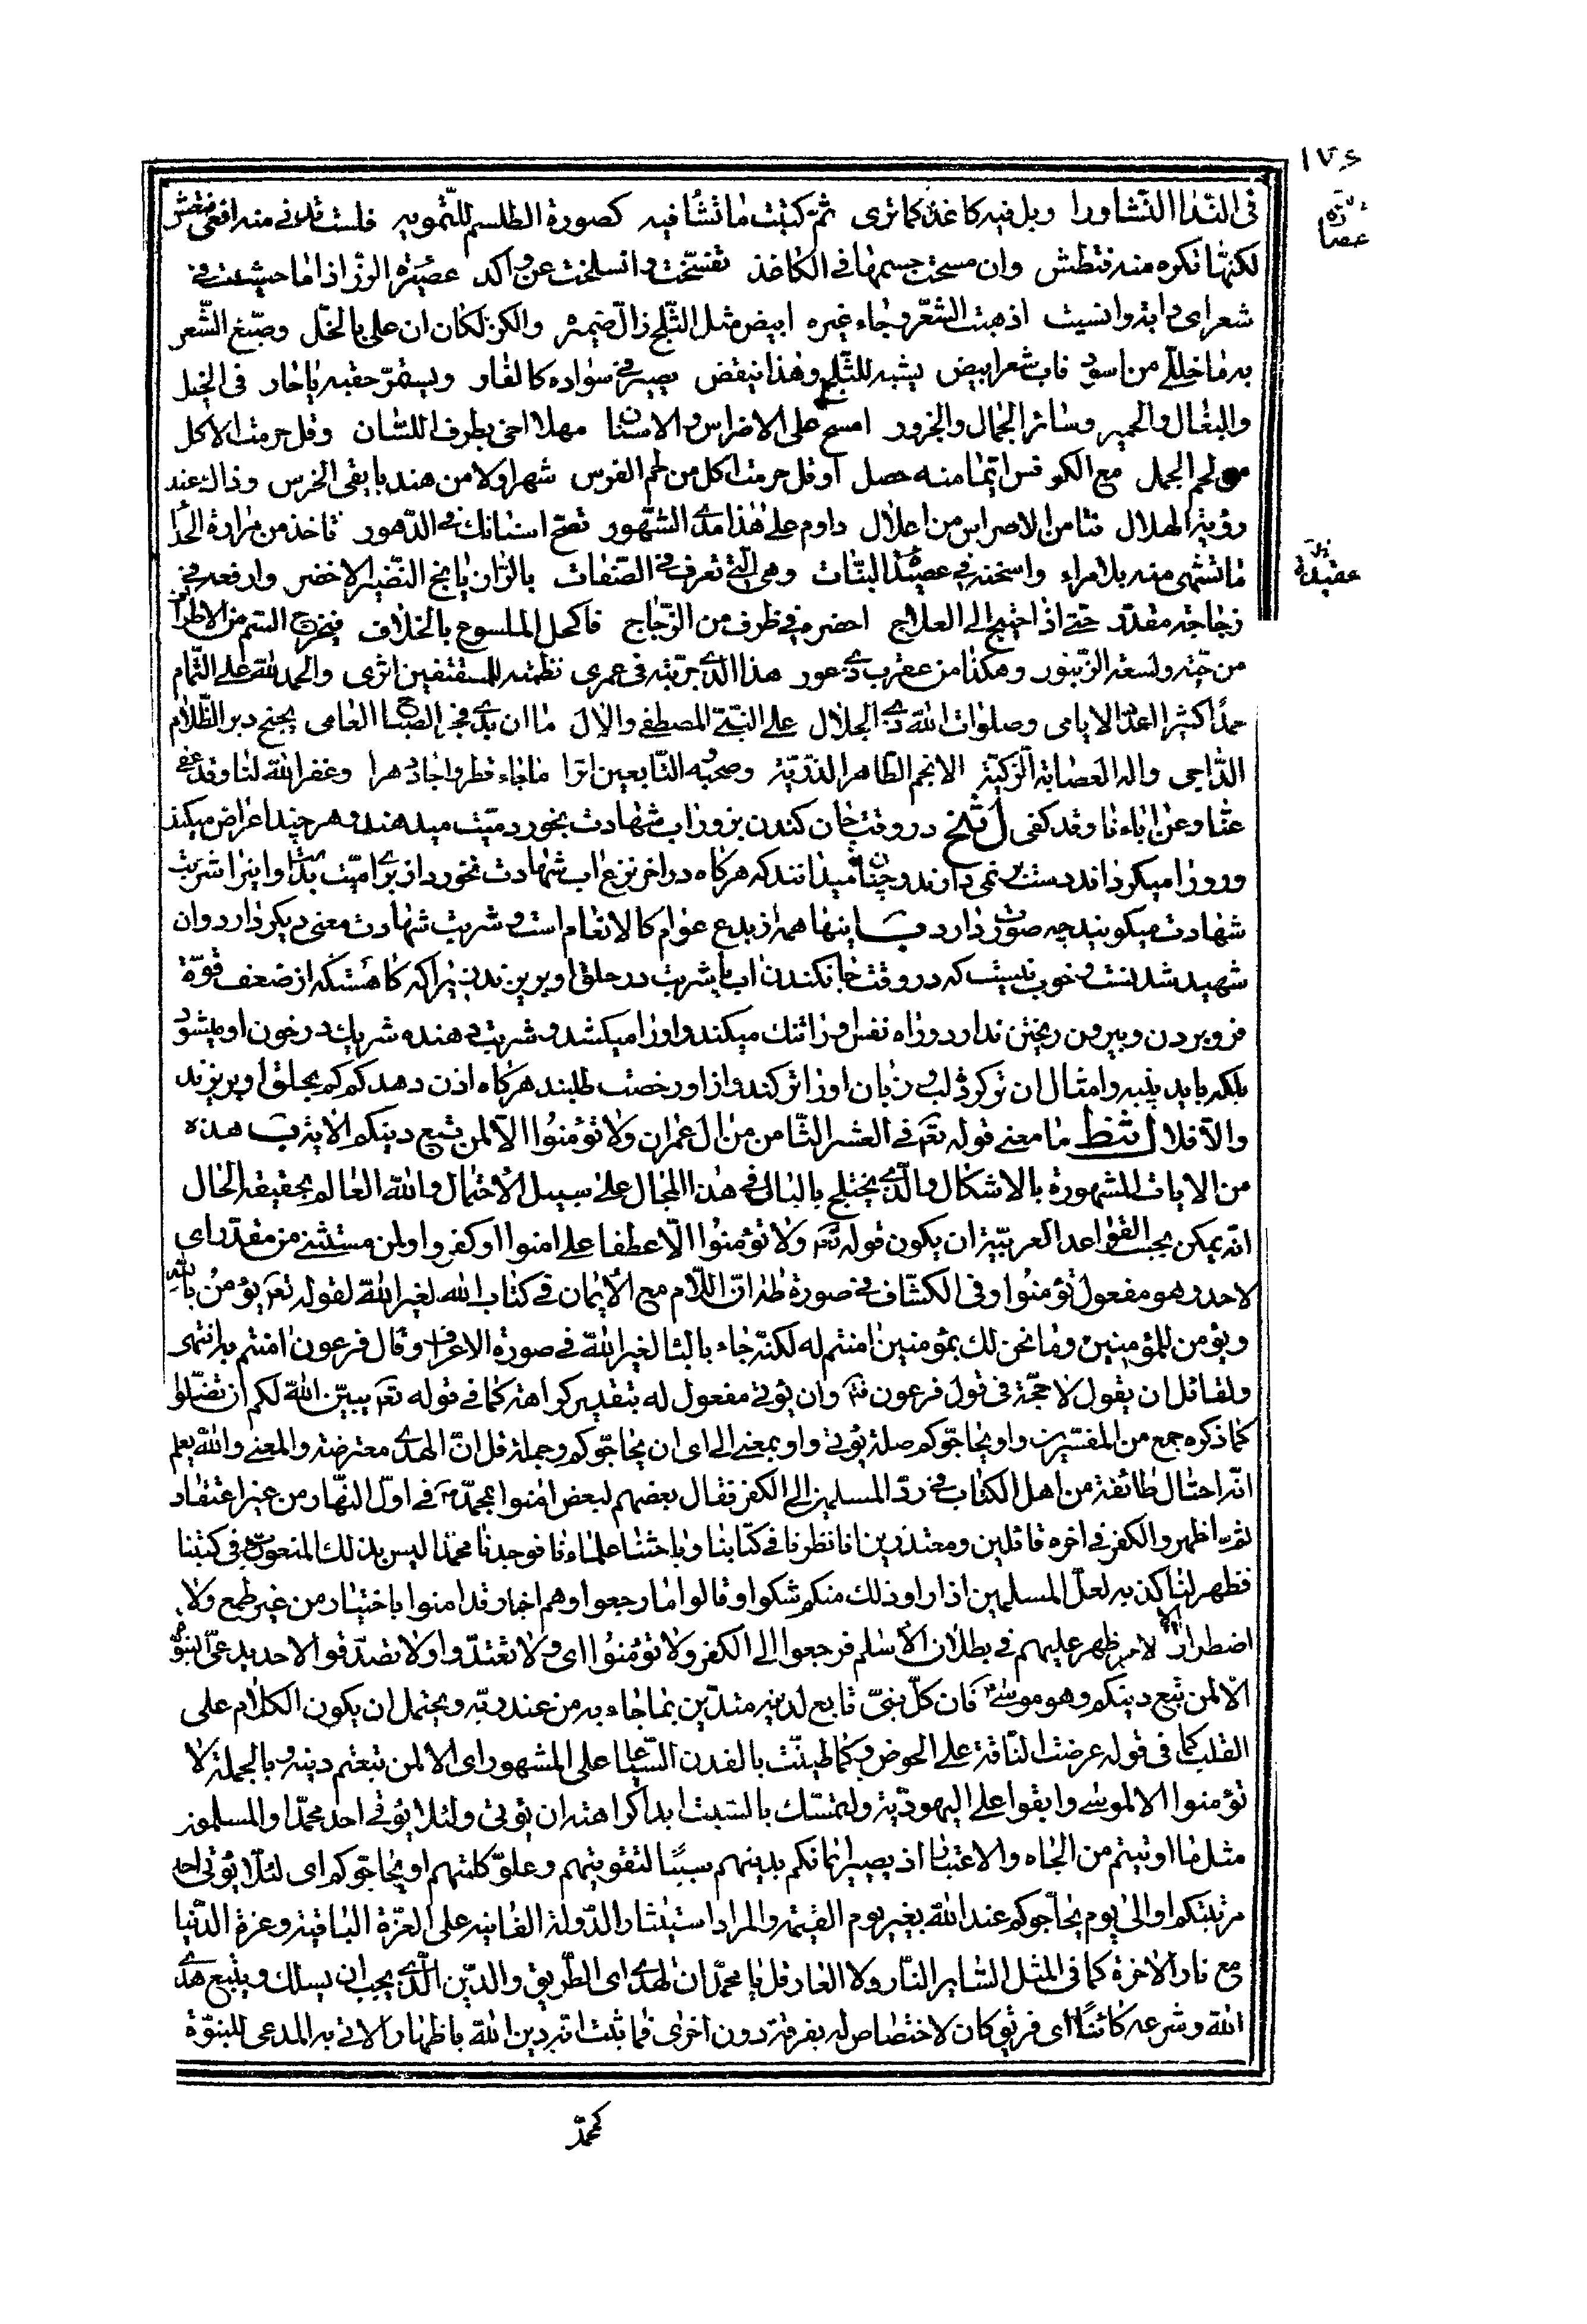 ١٧٤
عصارة
فى النداا لنشاورا وبل فيه كاغذ كما ترى ثمّ كتبت ما تشا فيه كصورة الطلسم للتمويه فلست تدنى منه افعى فتعش
لكنها تكره منه فتطش وان مسحت جسمها فى الكاغذ تفسخت وانسلخت عن وآكد عصيرة الوز اذا ما حشيت فى
شعر اى دابة وانسيت اذهبت الشعر وجاء غيره ابيض مثل الثلج زال ضيمه والكرّ لكان ان على بالخل وصبغ الشعر
به ما خلل من اسود فاب شعر ابيض يشبه للثلج وهذا ينقض يصير فى سواده كالقار ويستمر حقبة يا خار فى الخيل
والبغال والحمير وسائر الجمال والجزور امسح على الاضراس والاسنان مهلا اخى بطرف اللسان وقل حرمت الاكل
من لحم الجمل مع الكرفس اتيا منه حصل او قل حرمت اكل من لحم الفرس شهرا ولا من هندبا يبقى الخرس وذاك عند
رؤية الهلال تنا من الاضراس من اعلال داوم على هذا مدى الشهور تصح اسنانك فى الدهور تاخذ من مرارة الحدا
ما تشتهى منه بلا مراء واسخنه فى عصيدة النبات وهى التى تعرف فى الصفات بالرازيانج النضير الاخضر وارفعه فى
عقيدة
زجاجة مقدر حتى اذا احتيج الى العلاج احضره فى ظرف من الزجاج فاكحل الملسوع بالخلاف فيخرج السم من الاطراف
من حية ولسعة الزنبور وهكذا من عقرب ذى عور هذا الذى جربته فى عمرى نظمته للمقتفين اثرى والحمد لله على التمام
حمدًا كثيرا اعدّ الايامى وصلوات الله ذى الجلال على النبىّ المصطفى والآل ما ان بدى فجر الصبا العامى بجنح دبر الظلام
الداجى واله العصابة الزكية الانجم الطاهر الذريّة وصحبه التابعين اثرا ما جاء قطر واجاد دهرا وغفر الله لنا وقد عفى
عنا وعن اباءنا وقد كفى ل ثلخ در وقت جان كندن بزور اب شهادت بخورد ميّت ميدهند وهر چند اعراض ميكند
ورو را ميگرداند دست بر نمى دارند وچنان ميدانند كه هر گاه در اخر نزع اب شهادت نخورد از براى ميّت بد است واين را شربت
شهادت ميگويند چه صورت دارد ب اينها همه از بدع عوام كالانعام است وشربت شهادت معنى ديگر دارد وان
شهيد شدنست وخوب نيست كه در وقت جانكندن اب يا شربت در حلق او بريزند زيرا كه گاهست كه از ضعف قوّة
فرو بردن وبيرون ريختن ندارد وراه نفس او را تنك ميكند واو را ميكشد وشربت دهنده شريك در خون او ميشود
بلكه بايد پنبه وامثال ان تر كرد ولب وزبان او را تر كند واز او رخصت طلبند هر گاه اذن دهد كم كم بحلق او بريزند
والّا فلا ل ثنط ما معنى قوله تعم فى العشر الثامن من ال عمران ولا تؤمنوا الّا لمن تبع دينكم الاية ب هذه
من الايات المشهورة بالاشكال والذى يختلج بالبال فى هذا المجال على سبيل الاحتمال والله العالم بحقيقة الحال
انّه يمكن بحسب القواعد العربية ان يكون قوله تعم ولا تؤمنوا الّا عطفا على امنوا او كفروا ولمن مستثنى من مقدر اى
لاحد وهو مفعول تؤمنوا وفى الكشّاف فى صورة طه انّ اللّام مع الايمان فى كتاب الله لغير الله لقوله تعم يؤمن بالله
ويؤمن للمؤمنين وما نحن لك بمؤمنين امنتم له لكنّه جاء بالبا لغير الله فى صورة الاعراف وقال فرعون امنتم به انتهى
ولقائل ان يقول لا حجّة فى قول فرعون فتم وان يؤتى مفعول له بتقدير كراهة كما فى قوله تعم يبيّن الله لكم ان تضلّوا
كما ذكره جمع من المفسّرين واو يحاجّوكم صلة يؤتى واو بمعنى الى اى ان يحاجّوكم وجملة قل انّ الهدى معترضة والمعنى والله يعلم
انّه احتال طائفة من اهل الكتاب فى ردّ المسلمين الى الكفر فقال بعضهم لبعض امنوا بمحمّد ص فى اوّل النهار من غير اعتقاد
ثم اظهروا الكفر فى اخره قائلين ومعتذرين انا نظرنا فى كتابنا وباحثنا علماءنا فوجدنا محمّدا ليس بذلك المنعوت فى كتبنا
فظهر لنا كذبه لعلّ المسلمين اذا راوا ذلك منكم شكوا وقالوا ما رجعوا وهم احبار قد امنوا باختيار من غير طمع ولا
اضطرار الا لامر ظهر عليهم فى بطلان الاسلام فرجعوا الى الكفر ولا تؤمنوا اى ولا تعتدّوا ولا تصدّقوا لاحد يدعى النبوّة
الّا لمن تبع دينكم وهو موسى ع فان كلّ نبىّ تابع لدينه متديّن بما جاء به من عند ربّه ويحتمل ان يكون الكلام على
القلب كما فى قوله عرضت الناقة على الحوض وكما طينت بالفدن السّياعا على المشهور اى الا لمن تبعتم دينه وبالجملة لا
تؤمنوا الا لموسى وابقوا على اليهوديّة ولتمسّك بالسبت ابدا كراهة ان يؤتى ولئلا يؤتى احد محمّدا والمسلمون
مثل ما اوتيتم من الجاه والاعتبار اذ يصير ايمانكم بدينهم سببًا لتقويتهم وعلوّ كلمتهم او يحاجّوكم اى لئلّا يؤتى احد
مرتبتكم او الى يوم يحاجّوكم عند الله بغير يوم القيمة والمراد استيثار الدّولة الفانية على العزّة الباقية وعزة الدّنيا
مع نار الاخرة كما فى المثل السّاير النّار ولا العار قل يا محمّد ان الهدى اى الطّريق والدّين الّذى يجب ان يسلك ويتّبع هدى
الله وشرعه كائنًا اى فريق كان لا اختصاص له بفرقة دون اخرى فما ثبت انه دين الله باظهار الاتى به المدعى للنبوّة
كمحمّد